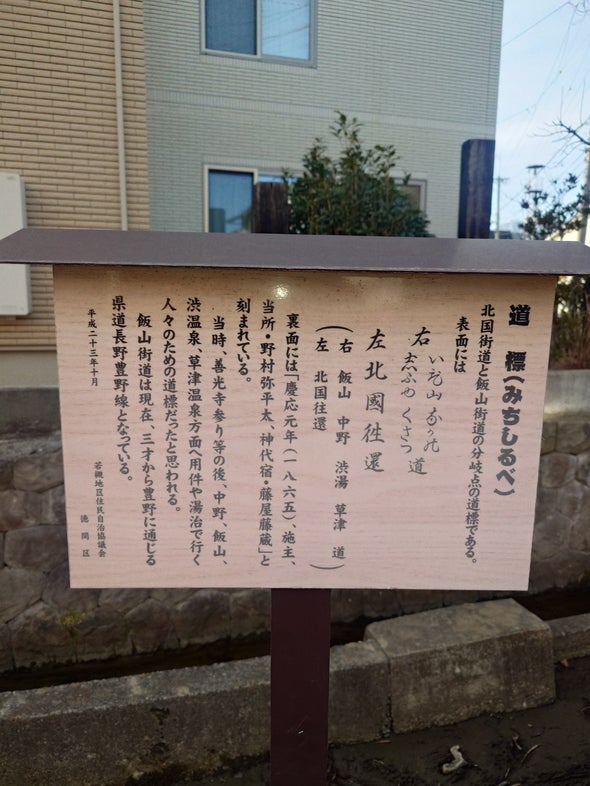 道標(みちしるべ)
北国街道と飯山街道の分岐点の道標である。
表面には
右 いひ山 なかの 道
志ぶゆ くさつ
左 北國徃還
(右 飯山 中野 渋湯 草津 道
左 北国往還)
裏面には「慶応元年(一八六五)、施主、
当所・野村弥平太、神代宿・藤屋藤蔵」と
刻まれている。
当時、善光寺参り等の後、中野、飯山、
渋温泉、草津温泉方面へ用件や湯治で行く
人々のための道標だったと思われる。
飯山街道は現在、三才から豊野に通じる
県道長野豊野線となっている。
平成二十三年十月
若槻地区住民自治協議会
徳間区